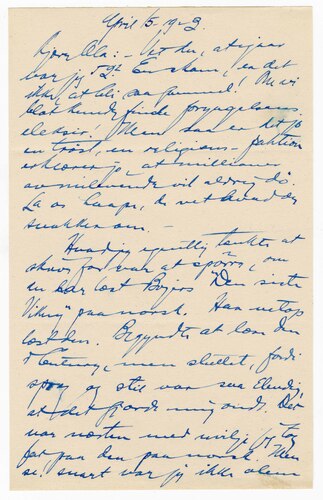 April 5 - 1923.
Kjære Ola: - Vet du, at igaar
var jeg 52! En skam, er det
ikke, at bli saa gammel! Om vi
blot kunde finde foryngelsens
eleksir! Men saa er det jo
en trøst, en religiøs faktion
erklærer jo at millioner
av nulevende vil aldrig dø.
La os haape, de vet hvad de
snakker om. —
Hvad jeg egentlig tænkte at
skrive for var at spørre, om
du har læst Bojers "Den siste
Viking" paa norsk. Har netop
læst den. Begyndte at læse den
i Century, men sluttet, fordi
sprog og stil var saa elendig,
at det gjorde mig ondt. Det
var næsten med uvilje jeg tog
fat paa den paa norsk. Men
se, snart var jeg ikke alene